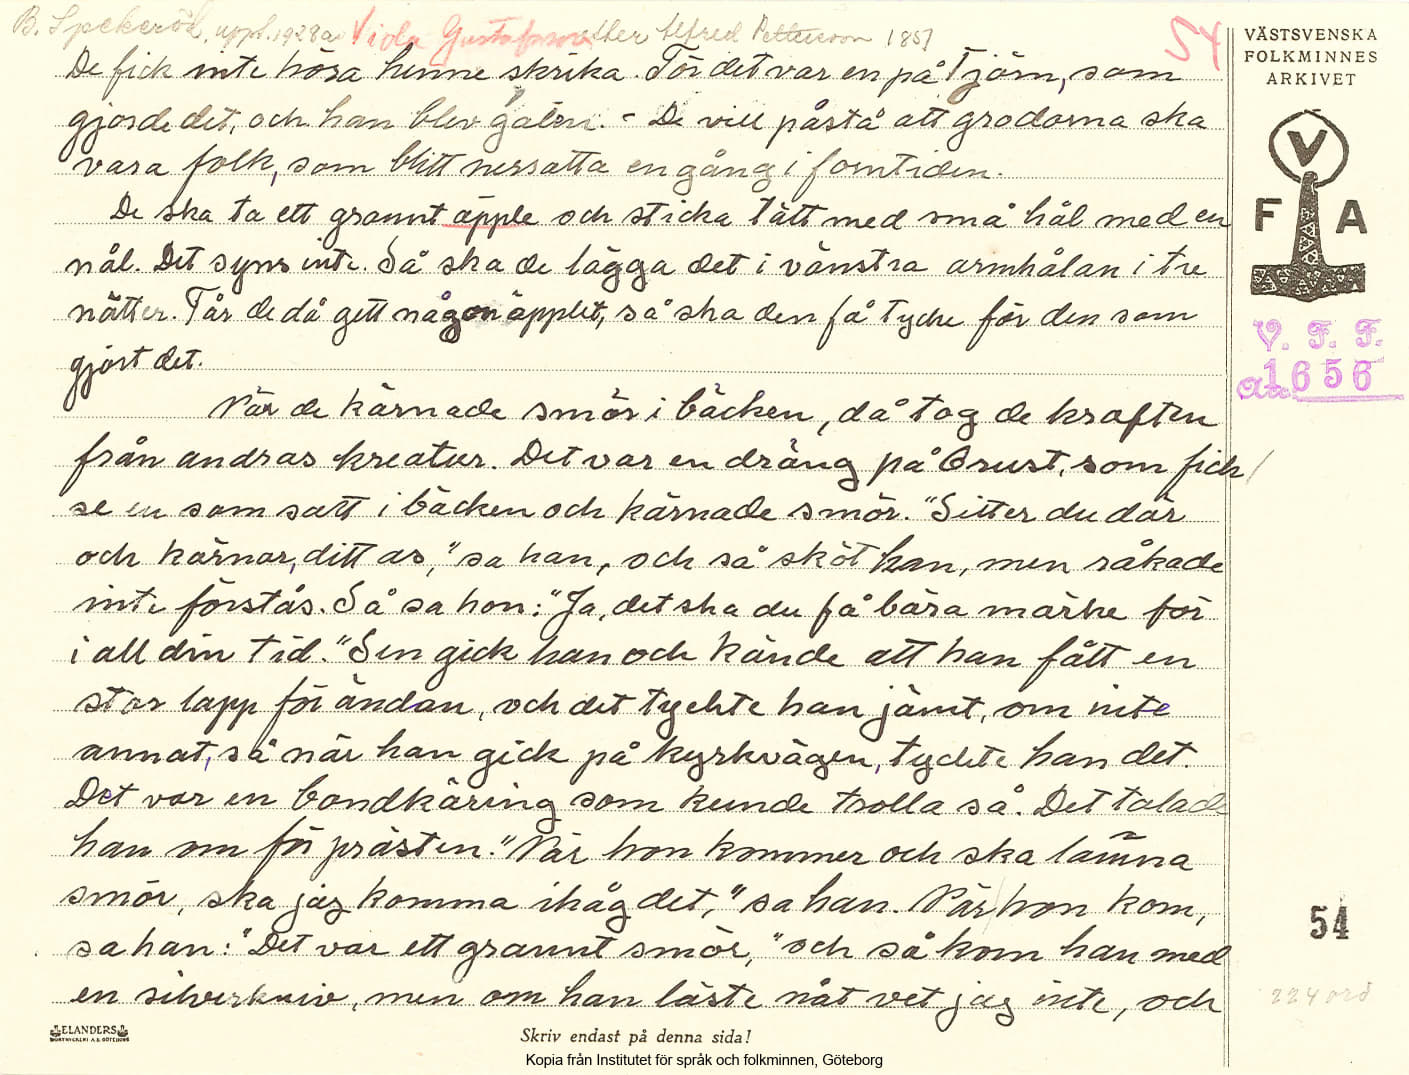 B. Spekeröd, uppt. 1928 av Viola Gustafsson efter Alfred Pettersson 1857
54
De fick inte höra henne skrika. För det var en på Tjörn, som
gjorde det, och han blev galen. - De vill påstå att grodorna ska
vara folk, som blitt nersatta en gång i forntiden.
De ska ta ett grannt äpple och sticka tätt med små hål med en
nål. Det syns inte. Så ska de lägga det i vänstra armhålan i tre
nätter. Får de då gett någon äpplet, så ska den få tycke för den som
gjort det.
När de kärnade smör i bäcken, då tog de kraften
från andras kreatur. Det var en dräng på Orust, som fick
se en som satt i bäcken och kärnade smör. "Sitter du där
och kärnar, ditt as," sa han, och så sköt han, men råkade
inte förstås. Så sa hon: "Ja, det ska du få bära märke för
i all din tid." Sen gick han och kände att han fått en
stor lapp för ändan, och det tyckte han jämt, om inte
annat, så när han gick på kyrkvägen, tyckte han det.
Det var en bondkäring som kunde trolla så. Det talade
han om för prästen. "När hon kommer och ska lämna
smör, ska jag komma ihåg det," sa han. När hon kom,
sa han: "Det var ett grannt smör," och så kom han med
en silverkniv, men om han läste nåt vet jag inte, och
VÄSTSVENSKA
FOLKMINNES
ARKIVET
V
F A
V. F. F.
1656
54
224 ord
ELANDERS
BOKTRYCKERI A.B. GÖTEBORG
Skriv endast på denna sida!
Kopia från Institutet för språk och folkminnen, Göteborg